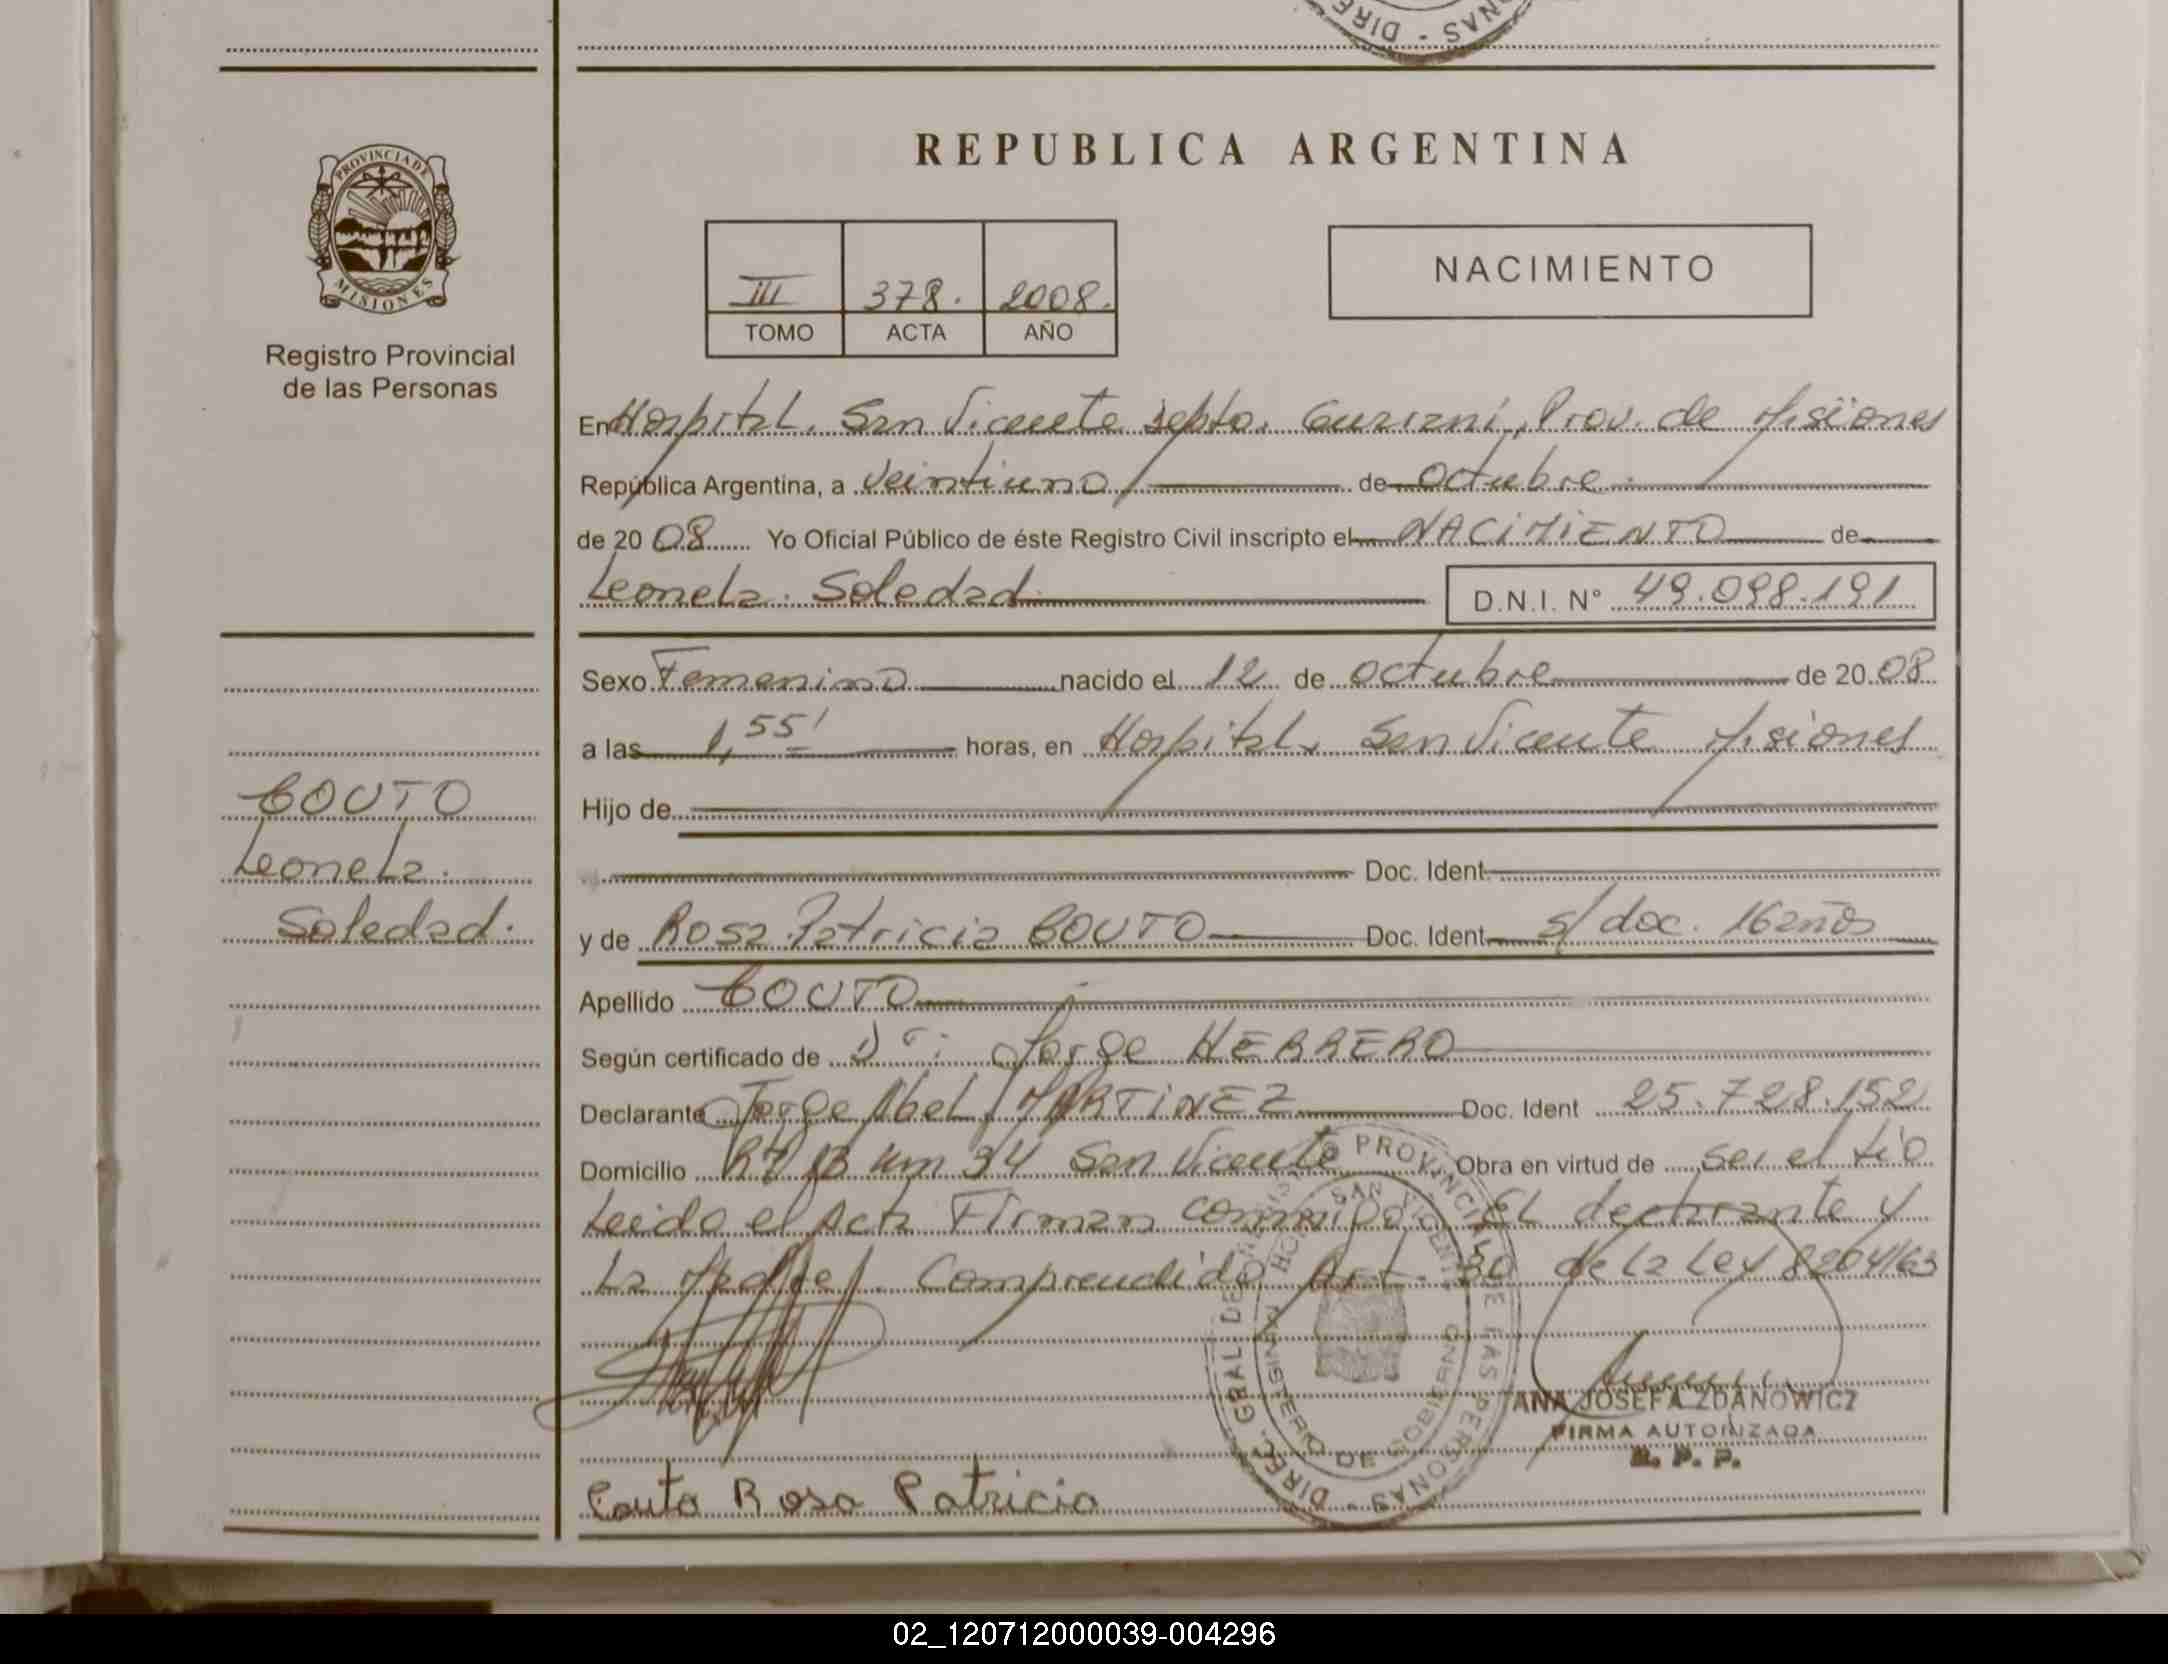 DIRE - NAS
REPUBLICA ARGENTINA
PROVINCIA DE
MISIONES
Registro Provincial
de las Personas
III 378. 2008.
TOMO ACTA AÑO
NACIMIENTO
En Hospital. San Vicente Depto. Guarani, Prov. de Misiones
República Argentina, a veintiuno de octubre
de 2008 Yo Oficial Público de éste Registro Civil inscripto el NACIMIENTO de
Leonela Soledad D.N.I. N° 49.098.191
Sexo Femenino nacido el 12 de octubre de 2008
a las 1,55' horas, en Hospital San Vicente Misiones
Hijo de
Doc. Ident.
y de Rosa Patricia COUTO Doc. Ident. s/ doc. 16 años
COUTO
Leonela
Soledad.
Apellido COUTO
Según certificado de Dr: Jorge HERRERO
Declarante Jorge Abel MARTINEZ Doc. Ident 25.728.152
Domicilio km 34 San Vicente Obra en virtud de ser el tio
Leida el Acta Firman conmigo El declarante y
La Madre. Comprendido Art. 30 de la Ley 8204/63
DIREC. GRAL DE REGISTRO PROVINCIAL DE LAS PERSONAS -
SAN VICENTE
MINISTERIO DE GOBIERNO
ANA JOSEFA ZDANOWICZ
FIRMA AUTORIZADA
R. P. P.
Couto Rosa Patricia
02_120712000039-004296